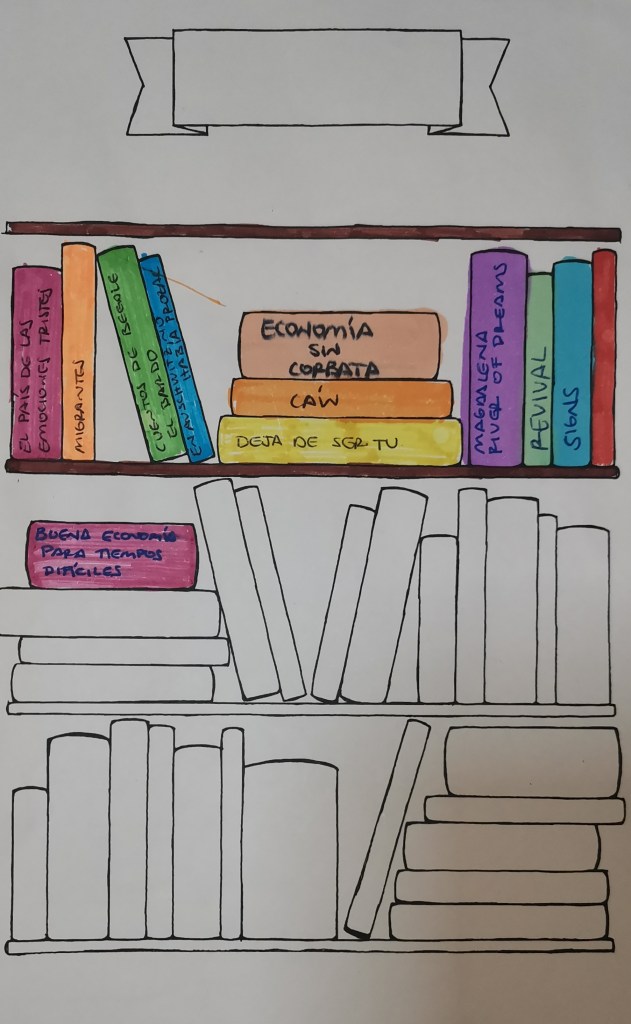 EL PAÍS DE LAS
EMOCIONES TRISTES
MIGRANTES
CUENTOS DE BEEDLE
EL BARDO
EN AUSCHWITZ NO
HABÍA PROZAC
ECONOMÍA
SIN
CORBATA
CAÍN
DEJA DE SER TU
MAGDALENA
RIVER OF DREAMS
REVIVAL
SIGNS
BUENA ECONOMÍA
PARA TIEMPOS
DIFÍCILES